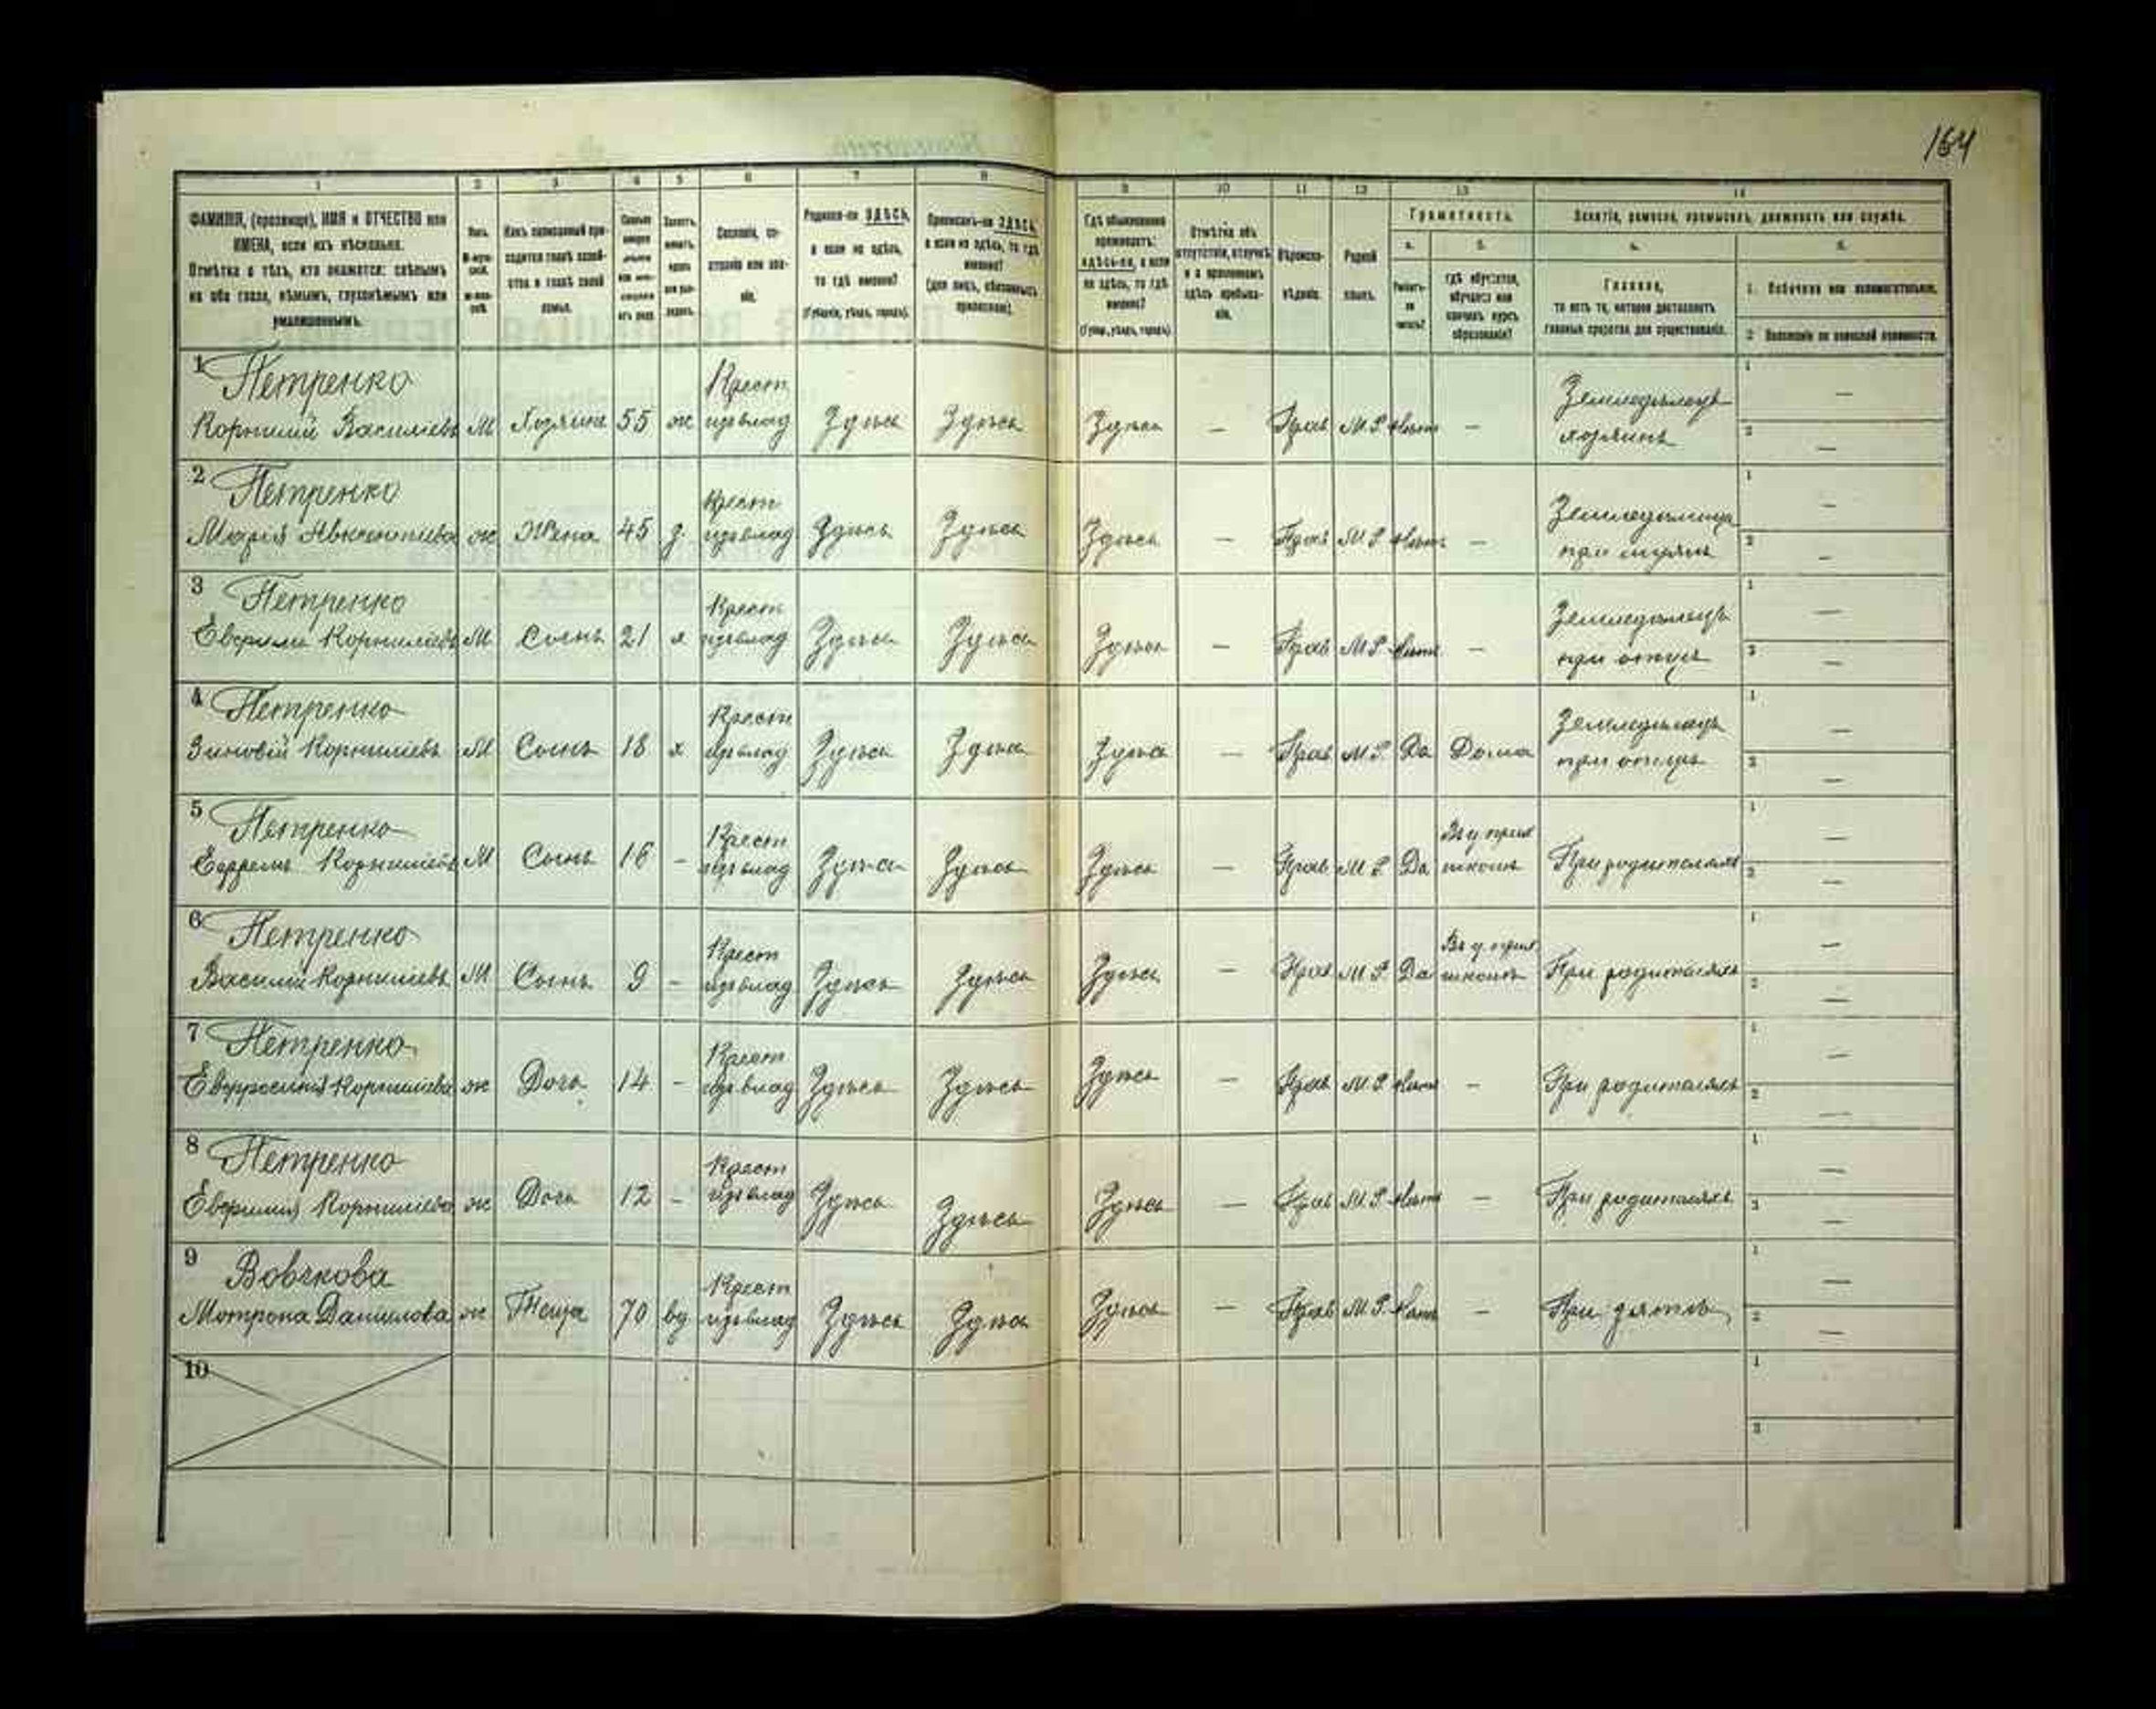 164
1 2 3 4 5 6 7 8 9 10 11 12 13 14
ФАМИЛІЯ, (прозвище), ИМЯ и ОТЧЕСТВО или
ИМЕНА, если ихъ нѣсколько.
Отмѣтка о тѣхъ, кто окажется: слѣпымъ
на оба глаза, нѣмымъ, глухонѣмымъ или
умалишеннымъ.
Полъ.
Какъ записанный при-
ходится главѣ хозяй-
ства и главѣ своей
семьи.
Сословіе, со-
стояніе или зва-
ніе.
Родился-ли ЗДѢСЬ,
а если не здѣсь,
то гдѣ именно?
(Губернія, уѣздъ, городъ).
Приписанъ-ли ЗДѢСЬ,
а если не здѣсь, то гдѣ
именно?
(для лицъ, обязанныхъ
припискою).
Гдѣ обыкновенно
проживаетъ:
здѣсь-ли, а если
не здѣсь, то гдѣ
именно?
(Губер., уѣздъ, городъ).
Отмѣтка объ
отсутствіи, отлучкѣ
и о временномъ
здѣсь пребыва-
ніи.
Вѣроиспо-
вѣданіе.
Родной
языкъ.
Грамотность.
а. б.
Умѣетъ-
ли
читать?
гдѣ обучается,
обучался или
кончилъ курсъ
образованія?
Занятіе, ремесло, промыселъ, должность или служба.
а. б.
Главное,
то есть то, которое доставляетъ
главныя средства для существованія.
1. Побочное или вспомогательное.
2. Положеніе по воинской повинности.
1 Петренко Крест Земледѣлецъ 1 —
Корнилій Василіевъ М Хозяинъ 55 ж изъ влад Здѣсь Здѣсь Здѣсь — Прав М.Р. Нѣтъ — хозяинъ 2 —
2 Петренко Крест 1 —
Марія ж Жена 45 з. изъ влад Здѣсь Здѣсь Здѣсь — Прав М.Р. Нѣтъ — при мужѣ 2 —
3 Петренко Крест Земледѣлецъ 1 —
Евфимій Корниліевъ М Сынъ 21 х изъ влад Здѣсь Здѣсь Здѣсь — Прав М.Р. Нѣтъ — при отцѣ 2 —
4 Петренко Крест Земледѣлецъ 1 —
Зиновій Корниліевъ М Сынъ 18 х изъ влад Здѣсь Здѣсь Здѣсь — Прав М.Р. Да Дома при отцѣ 2 —
5 Петренко Крест 1 —
Ефремъ Корниліевъ М Сынъ 16 - изъ влад Здѣсь Здѣсь Здѣсь — Прав М.Р. Да школѣ При родителяхъ 2 —
6 Петренко Крест 1 —
Василій Корниліевъ М Сынъ 9 - изъ влад Здѣсь Здѣсь Здѣсь — Прав М.Р. Да школѣ При родителяхъ 2 —
7 Петренко Крест 1 —
Евфросинія Корниліева ж Дочь 14 - изъ влад Здѣсь Здѣсь Здѣсь — Прав М.Р. Нѣтъ — При родителяхъ 2 —
8 Петренко Крест 1 —
Евфимія Корниліева ж Дочь 12 - изъ влад Здѣсь Здѣсь Здѣсь — Прав М.Р. Нѣтъ — При родителяхъ 2 —
9 Вовчкова Крест 1 —
Мотрона Данилова ж Теща 70 вд изъ влад Здѣсь Здѣсь Здѣсь — Прав М.Р. Нѣтъ — При зятѣ 2 —
10 1
2